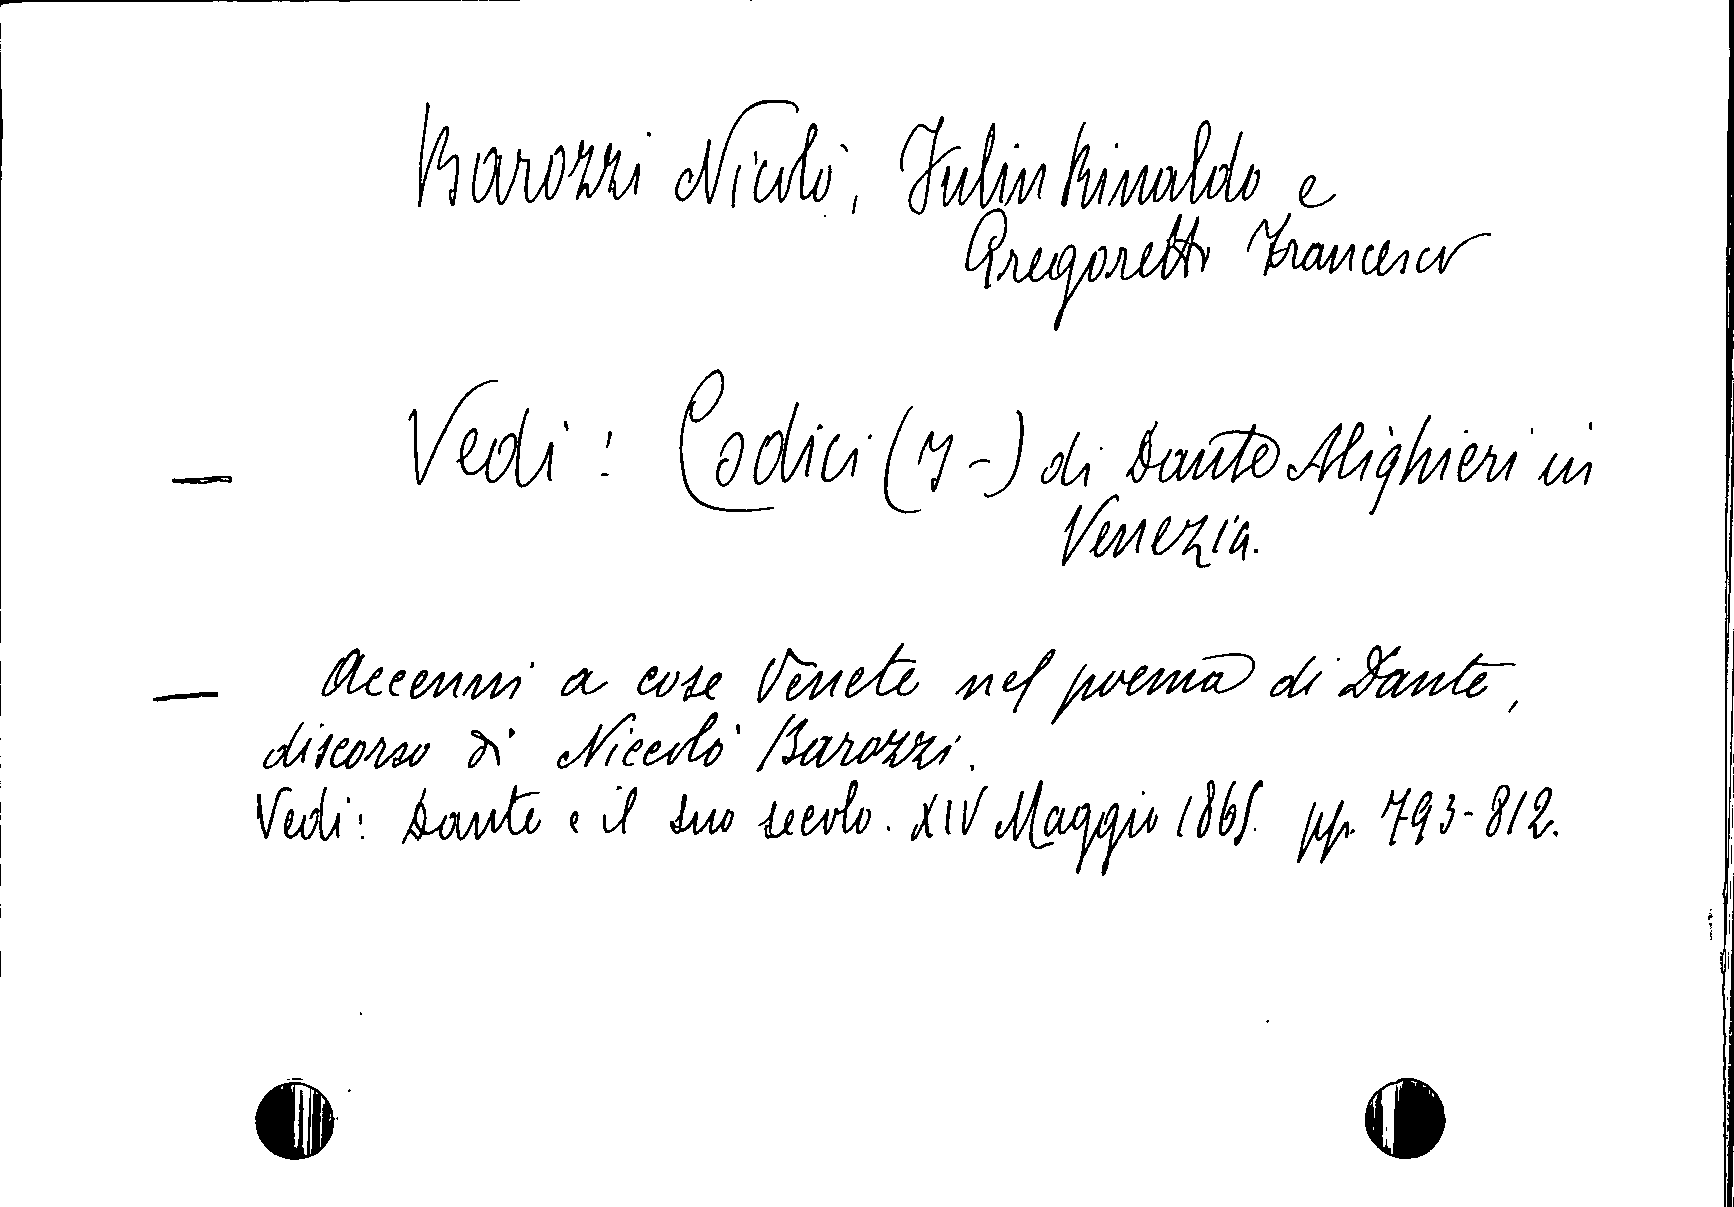 Barozzi Nicolò, Fulin Rinaldo e
Gregoretti Francesco
— Vedi: Codici (I-) di Dante Alighieri in
Venezia.
— Accenni a cose Venete nel poema di Dante,
discorso di Niccolò Barozzi.
Vedi: Dante e il suo secolo. XIV Maggio 1865. pp. 793-812.